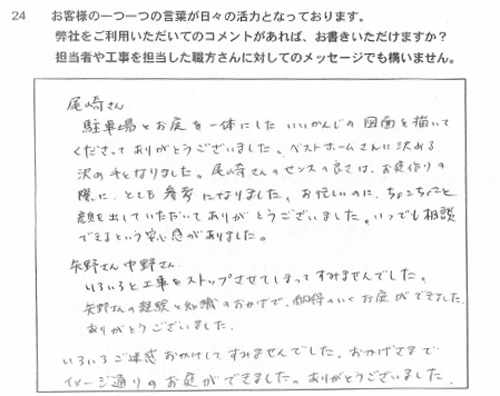 24 お客様の一つ一つの言葉が日々の活力となっております。
弊社をご利用いただいてのコメントがあれば、お書きいただけますか？
担当者や工事を担当した職方さんに対してのメッセージでも構いません。
尾崎さん
駐車場とお庭を一体にした いいかんじの図面を描いて
くださって ありがとうございました。ベストホームさんに決める
決め手となりました。尾崎さんのセンスの良さは、お庭作りの
際に、とても参考になりました。お忙しいのに、ちょこちょこと
顔を出していただいて ありがとうございました。いつでも相談
できるという安心感がありました。
矢野さん 中野さん
いろいろと工事をストップさせてしまってすみませんでした。
矢野さんの経験と知識のおかげで、納得のいくお庭ができました。
ありがとうございました。
いろいろご迷惑おかけしてすみませんでした。おかげさまで
イメージ通りのお庭ができました。ありがとうございました。